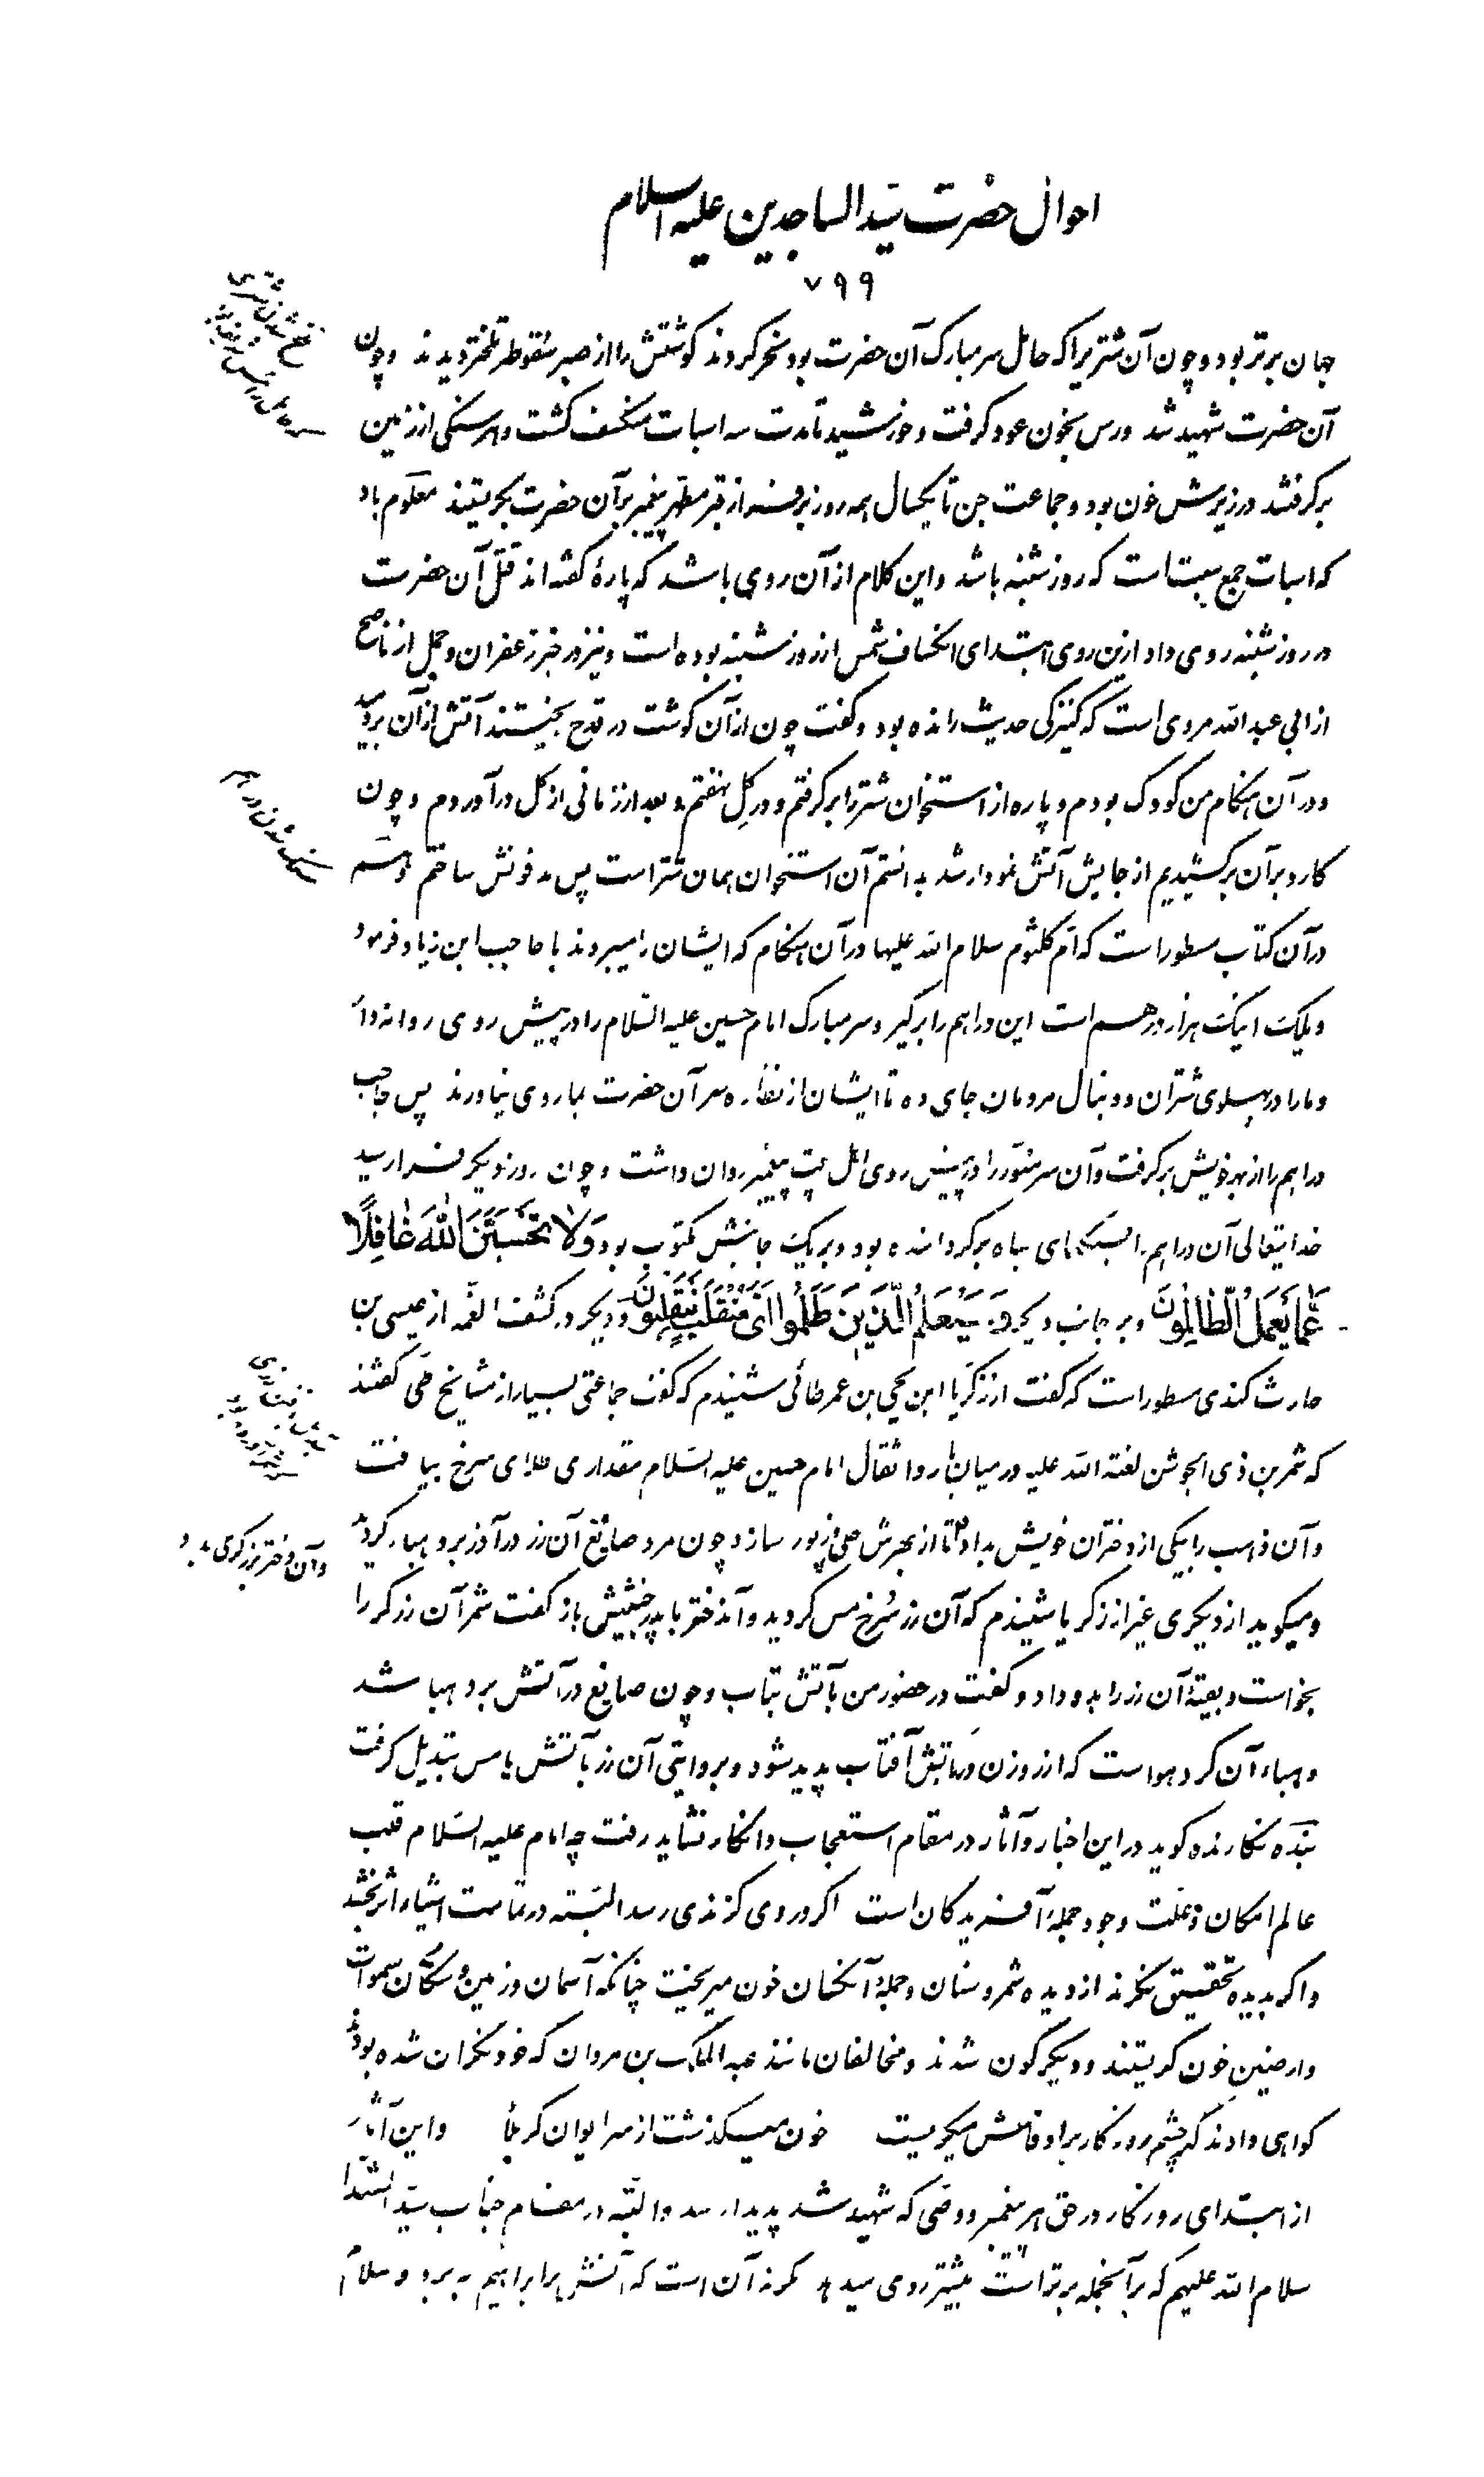 احوال حضرت سید الساجدین علیه السلام
۷۹۹
جهان برتر بود و چون آن شتریرا که حامل سر مبارک آن حضرت بود نحر کردند کوشتش را از صبر سقوطر تلختر دیدند و چون
آن حضرت شهید شد ورس بخون عود کرفت و خورشید تا مدت سه اسبات منکسف کشت و هر سنکی از زمین
برکرفتند در زیرش خون بود و جماعت جن تا یکسال همه روز بر فراز قبر مطهر پیغمبر بر آن حضرت بکریستند معلوم باد
که اسبات جمع سبت است که روز شنبه باشد و این کلام از آن روی باشد که پارهٔ کفته اند قتل آن حضرت
در روز شنبه روی داد ازین روی ابتدای انکساف شمس از روز شنبه بوده است و نیز در خبر زعفران و حمل از ناضح
از ابی عبد الله مروی است که کنیزکی حدیث رانده بود و کفت چون از آن کوشت در قدح بیختند آتش از آن بردمید
و در آن هنکام من کودک بودم و پاره از استخوان شتر را برکرفتم و در کل نهفتم و بعد از زمانی از کل در آوردم و چون
کارد بر آن برکشیدیم از جایش آتش نمودار شد بدانستم آن استخوان همان شتر است پس مدفونش ساختم و هم
در آن کتاب مسطور است که ام کلثوم سلام الله علیها در آن هنکام که ایشان را میبردند با حاجب ابن زیاد فرمود
ویلک اینک هزار درهم است این دراهم را برکیر و سر مبارک امام حسین علیه السلام را در پیش روی روانه دار
و ما را در پهلوی شتران و دنبال مردمان جای ده تا ایشان از نظاره سر آن حضرت بما روی نیاورند پس حاجب
دراهم را از بهر خویش برکرفت و آن سر منور را در پیش روی اهل بیت پیغمبر روان داشت و چون روز دیکر فرا رسید
خدایتعالی آن دراهم را بسنکهای سیاه برکردانده بود و بر یک جانبش مکتوب بود وَلا تَحْسَبَنَّ اللهَ غافِلاً
عَمّا یَعْمَلُ الظّالِمُونَ و بر جانب دیکر وَ سَیَعْلَمُ الَّذینَ ظَلَمُوا اَیَّ مُنْقَلَبٍ یَنْقَلِبُونَ و دیکر در کشف الغمه از عیسی بن
حارث کندی مسطور است که کفت از زکریا ابن یحیی بن عمر طائی شنیدم که کفت جماعتی بسیار از مشایخ طی کفتند
که شمر بن ذی الجوشن لعنه الله علیه در میان بار و اثقال امام حسین علیه السلام مقداری طلای سرخ بیافت
و آن ذهب را بیکی از دختران خویش بداد تا از بهرش حلی و زیور سازد و چون مرد صایغ آن زر در آذر برد هبا کردید
و آن دختر بزرکری بداد
و میکوید از دیکری غیر از زکریا شنیدم که آن زر سُرخ مس کردید و آندختر با پدر خبیثش باز کفت شمر آن زرکر را
بخواست و بقیهٔ آن زر را بدو داد و کفت در حضور من بآتش بتاب و چون صایغ در آتش برد هبا شد
و هباء آن کرد هواست که از روزن در تابش آفتاب پدید شود و بروایتی آن زر بآتش با مس تبدیل کرفت
بنده نکارنده کوید در این اخبار و آثار در مقام استعجاب و انکار نشاید رفت چه امام علیه السلام قلب
عالم امکان و علت وجود جملهٔ آفریدکان است اکر در وی کزندی رسد البته در تمامت اشیاء اثر بخشد
و اکر بدیده تحقیق نکرند از دیده شمر و سنان و جملهٔ آنکسان خون میریخت چنانکه آسمان و زمین و سکان سموات
و ارضین خون کریستند و دیکر کون شدند و مخالفان مانند عبد الملک بن مروان که خود نکران شده بودند
کواهی دادند که چشم روزکار بر او فاش میکریست خون میکذشت از سر ایوان کربلا و این آثار
از ابتدای روزکار در حق هر پیغمبر و وصی که شهید شد پدیدار شد و البته در مقام جناب سید الشهدا
سلام الله علیهم که بر آنجمله برتر است بیشتر روی میدهد مکر نه آن است که آتش را بر ابراهیم به برد و سلام
سنک شدن دراهم